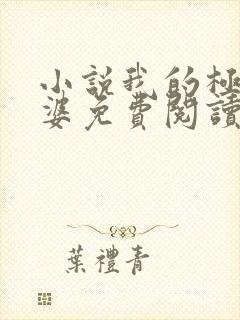 小說我的極
婆免費閱讀
葉禮青